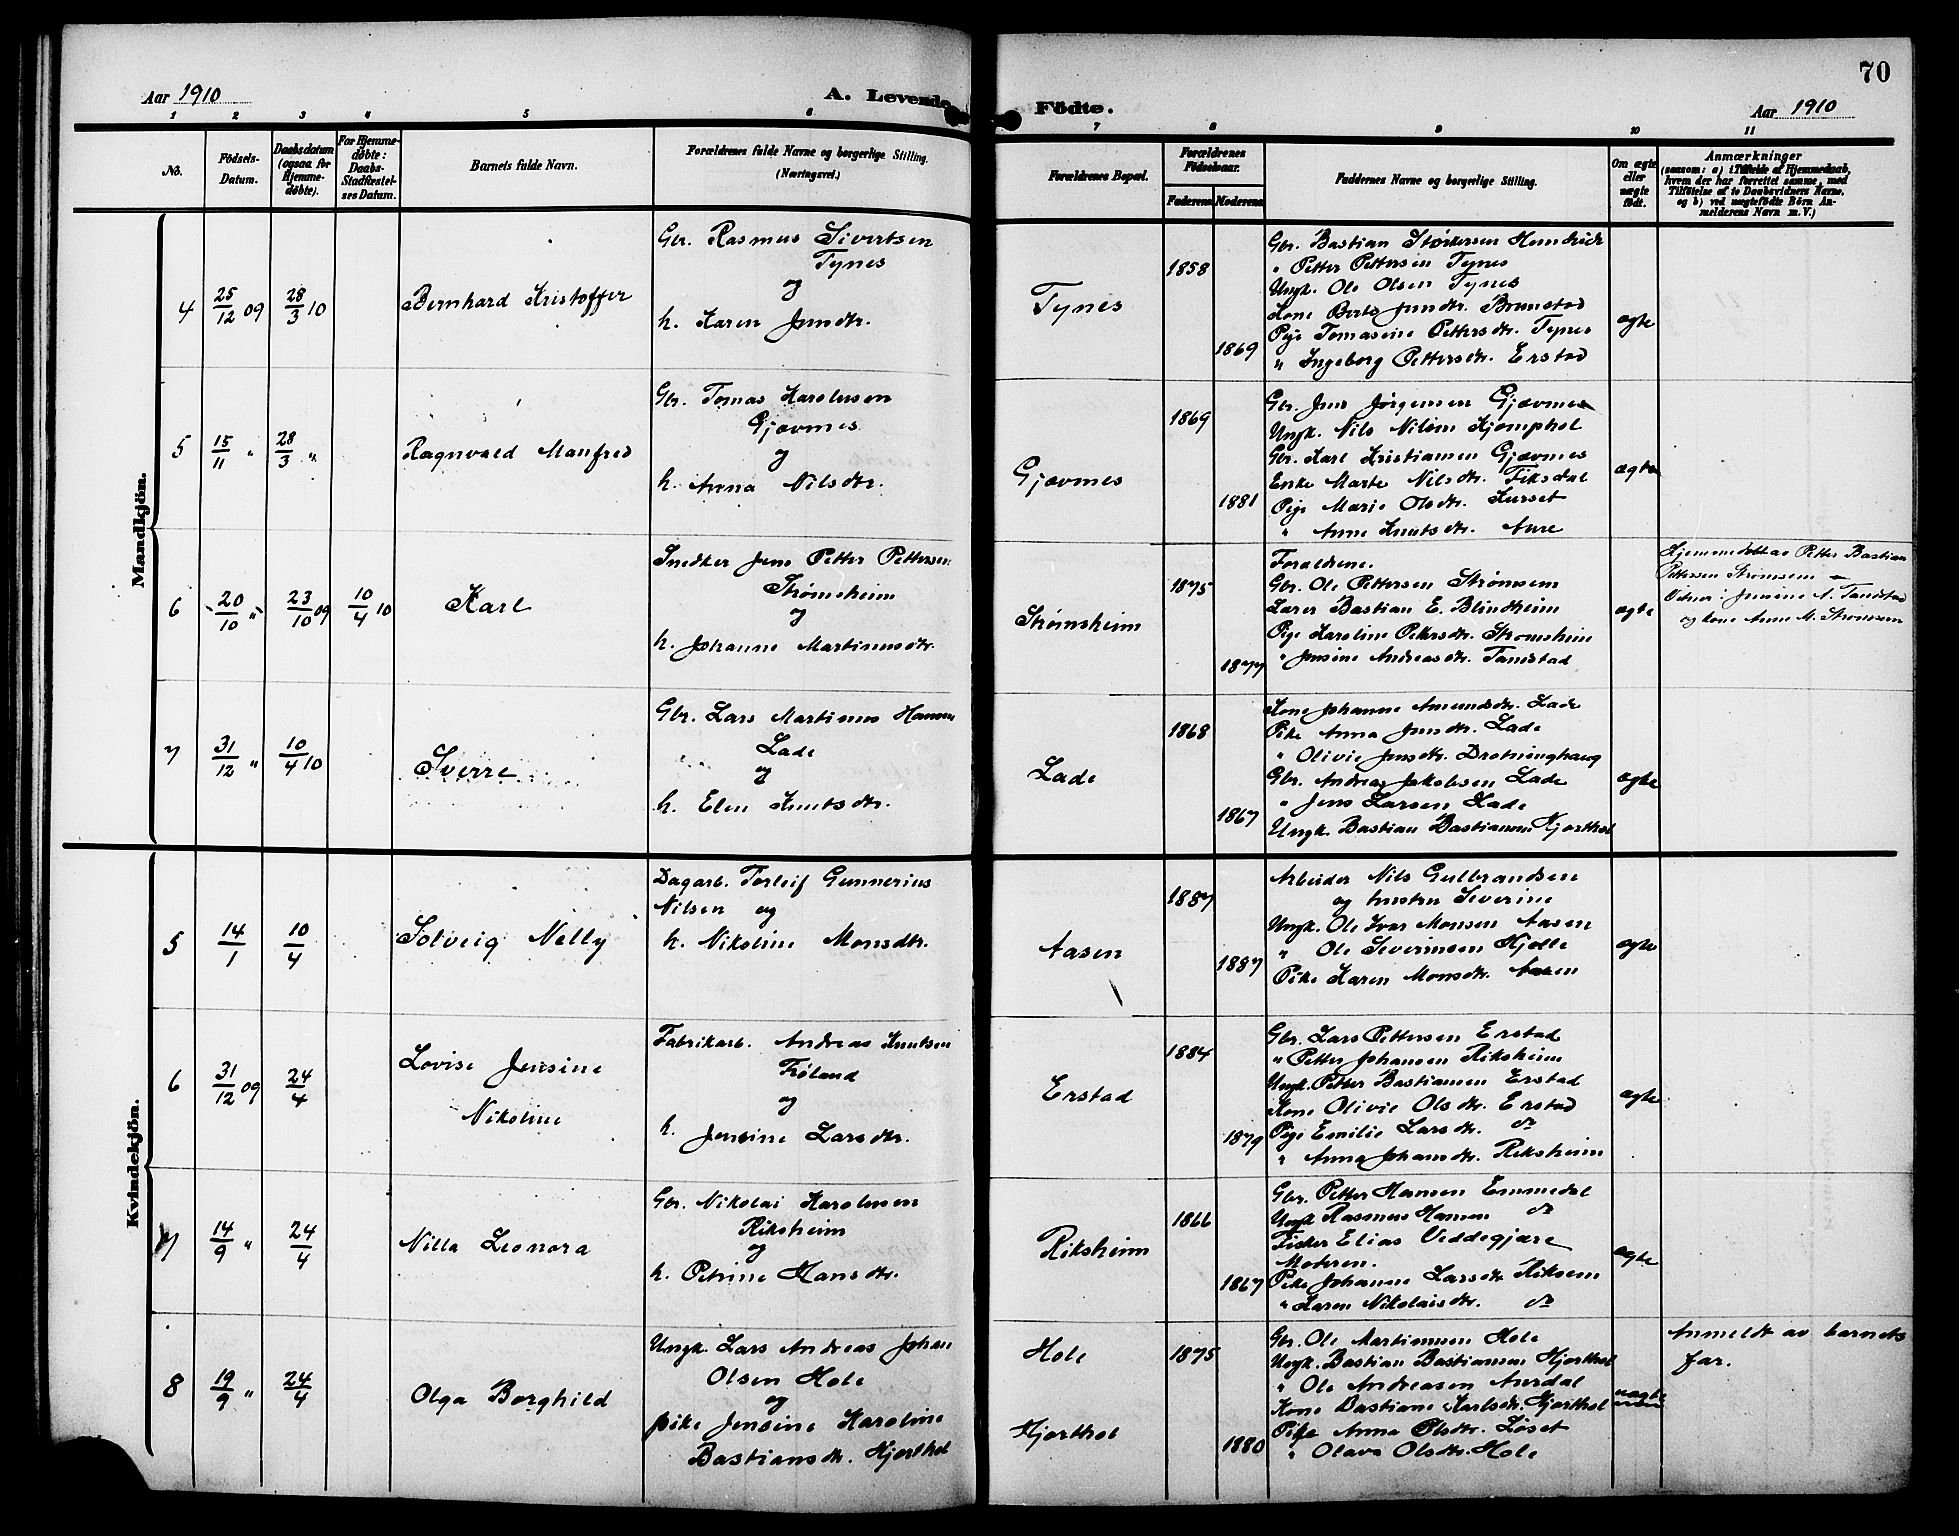 70
Aar 1910 A. Levende Födte. Aar 1910
1 2 3 4 5 6 7 8 9 10 11
No.
Födsels-Datum.
Daabsdatum (ogsaa for Hjemmedöbte).
For Hjemmedöbte: Daabs-Stadfæstelses Datum.
Barnets fulde Navn.
Forældrenes fulde Navne og borgerlige Stilling. (Næringsvei.)
Forældrenes Bopæl.
Forældrenes Födselsaar.
Faderens Moderens
Faddernes Navne og borgerlige Stilling.
Om ægte eller uægte födt.
Anmærkninger
(saasom: a) i Tilfælde af Hjemmedaab, hvem der har forrettet samme, med Tilföielse af to Daabsvidners Navne, og b) ved uægtefödte Börn Anmelderens Navn m. V.)
Mandkjön.
4 25/12 09 28/3 10
Bernhard Kristoffer
Gbr. Rasmus Sivertsen
Tynes
og
h. Karen Jensdtr.
Tynes
1858
1869
Gbr. Bastian Størkersen Hemdrich
" Petter Pettersen Tynes
Ungk. Ole Olsen Tynes
Kone Berte Jensdtr. Brunstad
Pige Tomasine Pettersdtr. Tynes
" Ingeborg Pettersdtr. Erstad
ægte
5 15/11 " 28/3 "
Ragnvald Manfred
Gbr. Tomas Karolusen
Gjævnes
og
h. Anna Nilsdtr.
Gjævnes
1869
1881
Gbr. Jens Jørgensen Gjævnes
Ungk. Nils Nilsen Kjemphol
Gbr. Karl Kristiansen Gjævnes
Enke Marte Nilsdtr. Fiksdal
Pige Marie Olsdtr. Kurset
" Anne Knutsdtr. Aure
ægte
6 20/10 " 23/10 09 10/4 10
Karl
Snedker Jens Petter Pettersen
Strømsheim
og
h. Johanne Martinusdtr.
Strømsheim
1875
1877
Forældrene.
Gbr. Ole Pettersen Strømsem
Lærer Bastian E. Blindheim
Pige Karoline Petersdtr. Strømsheim
" Jensine Andreasdtr. Tandstad
ægte
Hjemmedøbt av Petter Bastian
Pettersen Strømsem
Vidner: Jensine A. Tandstad
og kone Anne M. Strømsem
7 31/12 " 10/4 10
Sverre
Gbr. Lars Martinus Hansen
Lade
og
h. Elen Knutsdtr.
Lade
1868
1867
Kone Johanne Amundsdtr. Lade
Pike Anna Jensdtr. Lade
" Olivie Jensdtr. Drotninghaug
Gbr. Andreas Jakobsen Lade
" Jens Larsen Lade
Ungk. Bastian Bastiansen Hjorthol
ægte
Kvindekjön.
5 14/1 10/4
Solveig Nelly
Dagarb. Torleif Gunnerius
Nilsen og
h. Nikoline Monsdtr.
Aasen
1887
1887
Arbeider Nils Gulbrandsen
og hustru Severine
Ungk. Ole Ivar Monsen Aasen
" Ole Severinsen Hjelle
Pike Karen Monsdtr. Aasen
ægte
6 31/12 09 24/4
Lovise Jensine
Nikoline
Fabrikarb. Andreas Knutsen
Frøland
og
h. Jensine Larsdtr.
Erstad
1884
1879
Gbr. Lars Pettersen Erstad
" Petter Johansen Riksheim
Ungk. Petter Bastiansen Erstad
Kone Olivie Olsdtr. Erstad
Pige Emilie Larsdtr. do
" Anna Johansdtr. Riksheim
ægte
7 14/9 " 24/4
Nilla Leonora
Gbr. Nikolai Karolusen
Riksheim
og
h. Petrine Hansdtr.
Riksheim
1866
1867
Gbr. Petter Hansen Emmedal
Ungk Rasmus Hansen do
Fisker Elias Veddegjære
Moderen.
Pike Johanne Larsdtr Riksem
" Karen Nikolaisdtr. do
ægte
8 19/9 " 24/4
Olga Borghild
Ungk. Lars Andreas Johan
Olsen Hole
og
pike Jensine Karoline
Bastiansdtr. Hjorthol
Hole
Hjorthol
1875
1880
Gbr. Ole Martinusen Hole
Ungk. Bastian Bastiansen Hjorthol
" Ole Andreasen Aurdal
Kone Bastiane Karlsdtr. Hjorthol
Pige Anna Olsdtr. Løset
" Olava Olsdtr. Hole
uægte
Anmeldt av barnets
far.